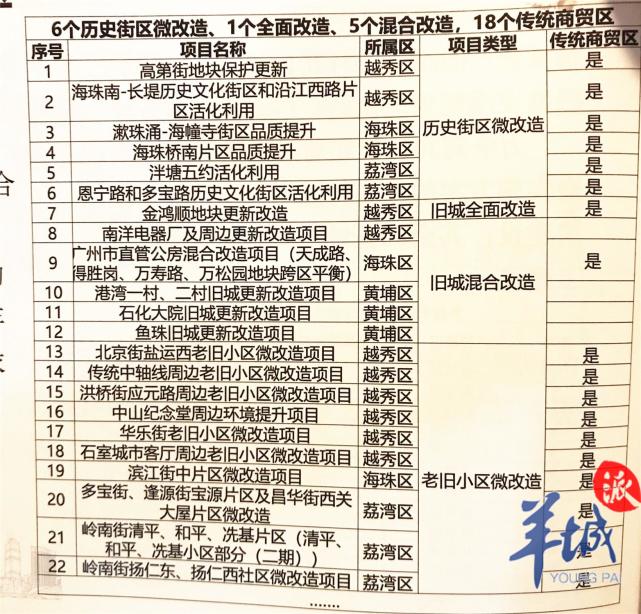 6个历史街区微改造、1个全面改造、5个混合改造，18个传统商贸区
序号 项目名称 所属区 项目类型 传统商贸区
1 高第街地块保护更新 越秀区 是
2 海珠南-长堤历史文化街区和沿江西路片区活化利用 越秀区 是
3 漱珠涌-海幢寺街区品质提升 海珠区 历史街区微改造 是
4 海珠桥南片区品质提升 海珠区 是
5 泮塘五约活化利用 荔湾区 是
6 恩宁路和多宝路历史文化街区活化利用 荔湾区 是
7 金鸿顺地块更新改造 越秀区 旧城全面改造 是
8 南洋电器厂及周边更新改造项目 越秀区
9 广州市直管公房混合改造项目（天成路、得胜岗、万寿路、万松园地块跨区平衡） 海珠区 旧城混合改造 是
10 港湾一村、二村旧城更新改造项目 黄埔区
11 石化大院旧城更新改造项目 黄埔区
12 鱼珠旧城更新改造项目 黄埔区
13 北京街盐运西老旧小区微改造项目 越秀区 是
14 传统中轴线周边老旧小区微改造项目 越秀区 是
15 洪桥街应元路周边老旧小区微改造项目 越秀区 是
16 中山纪念堂周边环境提升项目 越秀区 是
17 华乐街老旧小区微改造项目 越秀区 是
18 石室城市客厅周边老旧小区微改造项目 越秀区 是
19 滨江街中片区微改造项目 海珠区 老旧小区微改造 是
20 多宝街、逢源街宝源片区及昌华街西关大屋片区微改造 荔湾区 是
21 岭南街清平、和平、冼基片区（清平、和平、冼基小区部分（二期）） 荔湾区 是
22 岭南街扬仁东、扬仁西社区微改造项目 荔湾区 是
.......
羊城派
YOUNG PAI
合